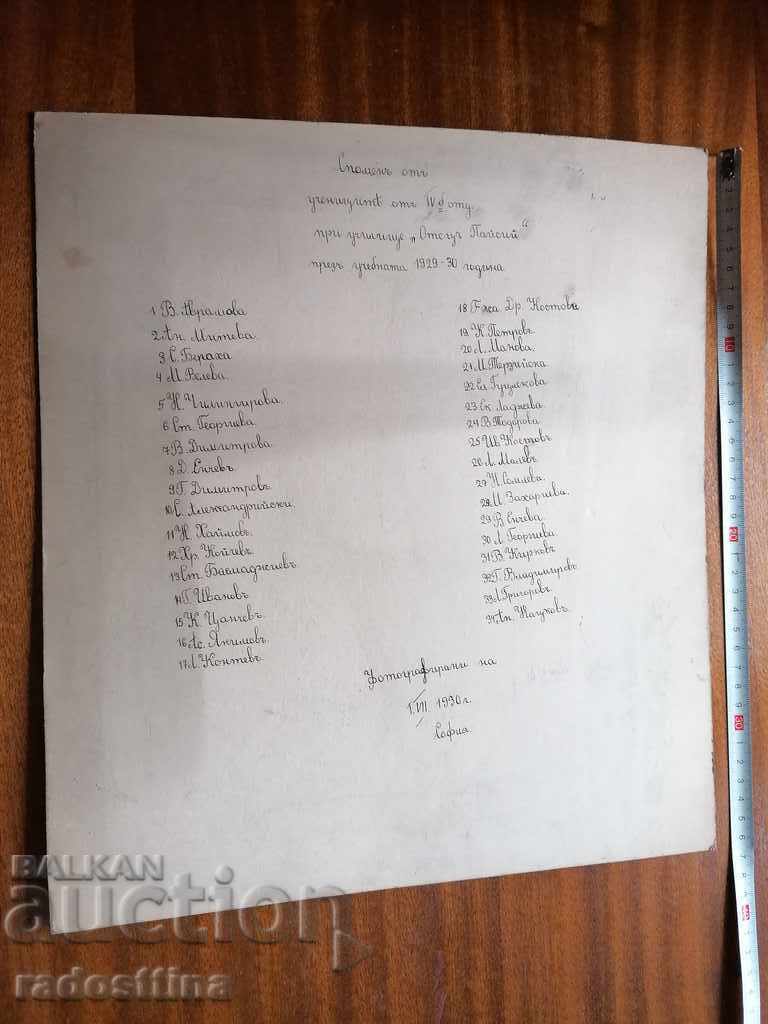 Споменъ отъ
ученицитѣ отъ IV б отд.
при училище „Отецъ Паисий“
презъ учебната 1929-30 година
1 В. Аврамова
2 Ан. Митева.
3 С. Бераха
4 М. Велева.
5 Н. Чилингирова.
6 Ст. Георгиева.
7 В. Димитрова.
8 Д. Енчевъ.
9 Г. Димитровъ.
10 С. Александрийски.
11 Н. Хаимовъ.
12 Хр. Койчевъ.
13 Ст. Бавмаджиевъ.
14 Г. Ивановъ.
15 К. Цанчевъ.
16 Ас. Якимовъ.
17 Л. Контевъ.
18 Г-жа. Др. Костова
19 К. Петровъ.
20 Л. Манова.
21 М. Терзийска
22 Ел. Гугушкова
23 Ек. Ладжева.
24 В. Тодорова.
25 Цв. Костовъ.
26 Л. Малевъ.
27 Н. Сомлева.
28 И. Захариева.
29 В. Енчева.
30 Л. Георгиева.
31 В. Кирковъ
32 Г. Владимировъ
33 Л. Григоровъ.
34 Ан. Науховъ.
Фотографирани на
1. VII 1930 г.
София.
BALKAN
auction
radosttina